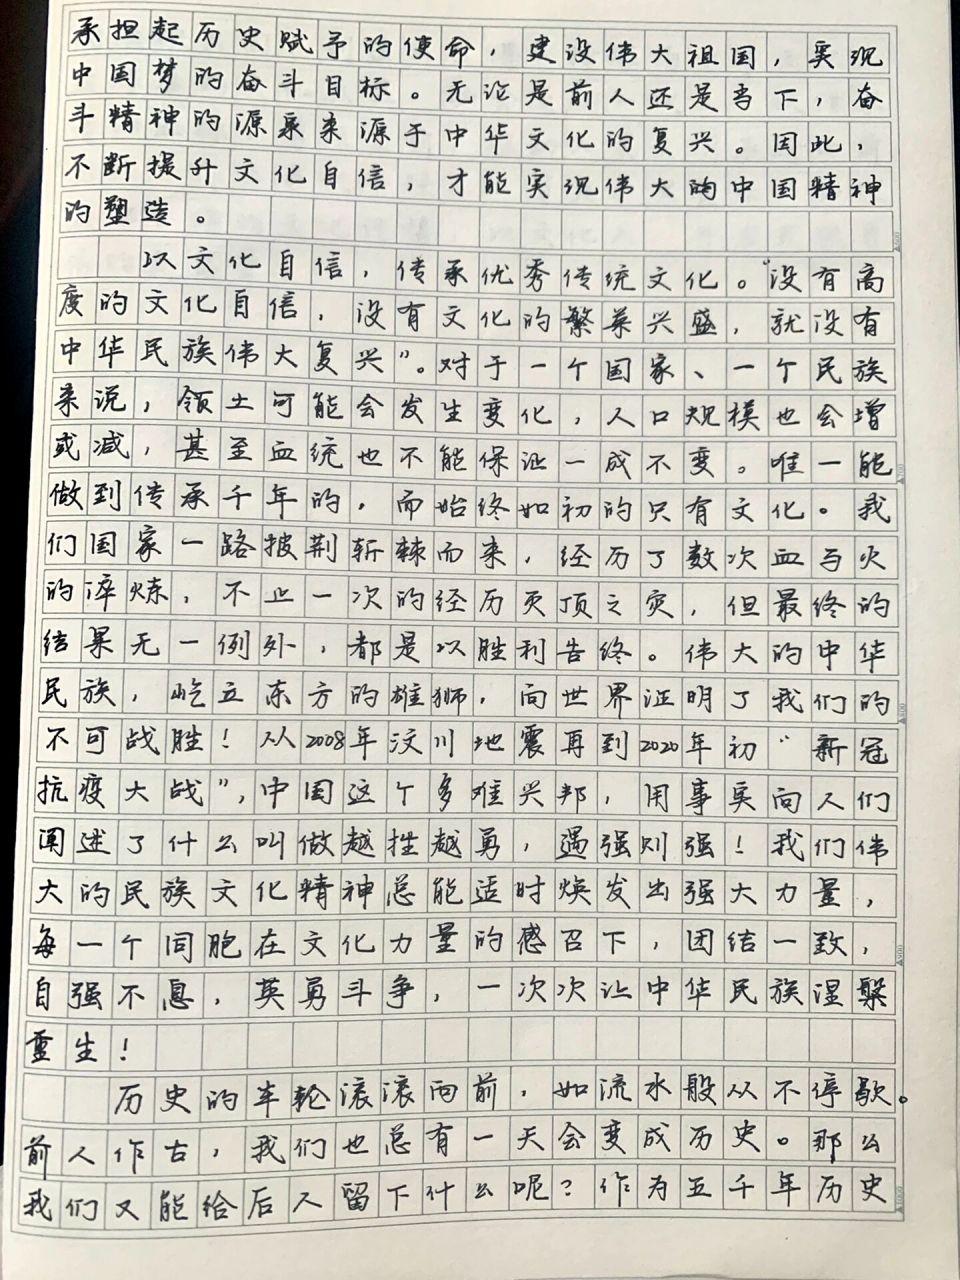 承担起历史赋予的使命，建设伟大祖国，实现
中国梦的奋斗目标。无论是前人还是当下，奋
斗精神的源泉来源于中华文化的复兴。因此，
不断提升文化自信，才能实现伟大的中国精神
的塑造。
以文化自信，传承优秀传统文化。“没有高
度的文化自信，没有文化的繁荣兴盛，就没有
中华民族伟大复兴”。对于一个国家、一个民族
来说，领土可能会发生变化，人口规模也会增
或减，甚至血统也不能保证一成不变。唯一能
做到传承千年的，而始终如初的只有文化。我
们国家一路披荆斩棘而来，经历了数次血与火
的淬炼，不止一次的经历灭顶之灾，但最终的
结果无一例外，都是以胜利告终。伟大的中华
民族，屹立东方的雄狮，向世界证明了我们的
不可战胜！从2008年汶川地震再到2020年初“新冠
抗疫大战”，中国这个多难兴邦，用事实向人们
阐述了什么叫做越挫越勇，遇强则强！我们伟
大的民族文化精神总能适时焕发出强大力量，
每一个同胞在文化力量的感召下，团结一致，
自强不息，英勇斗争，一次次让中华民族涅槃
重生！
历史的车轮滚滚向前，如流水般从不停歇。
前人作古，我们也总有一天会变成历史。那么
我们又能给后人留下什么呢？作为五千年历史